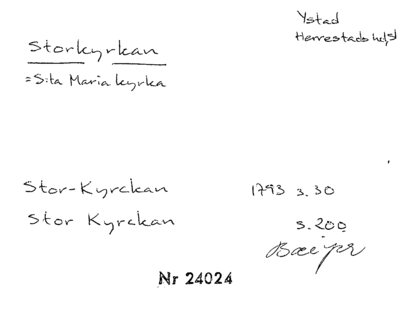 Ystad
Storkyrkan
Herrestads hd
= S:ta Maria kyrka
Stor-Kyrckan 1793 s. 30
Stor Kyrckan s. 200
Nr 24024